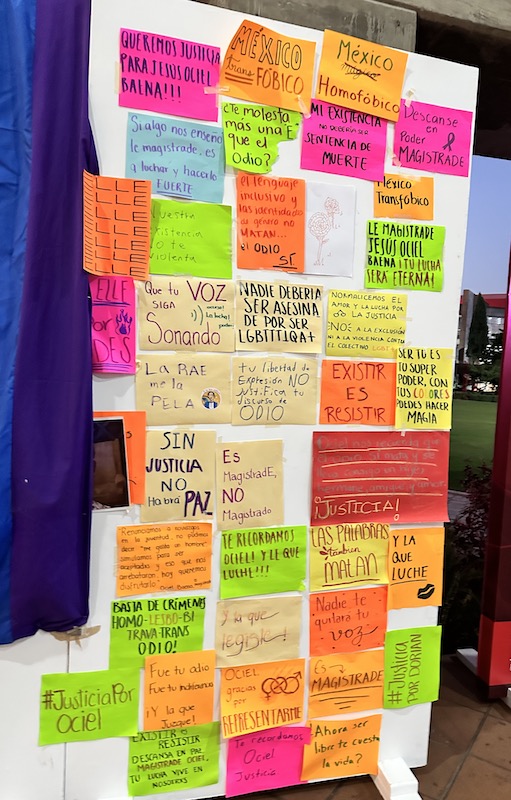 QUEREMOS JUSTICIA
PARA JESÚS OCIEL
BAENA!!!
MÉXICO
trans FÓBICO
México
Homofóbico
¿Te molesta
más una E
que el
Odio?
MI EXISTENCIA
NO DEBERÍA SER
SENTENCIA
DE MUERTE
Descanse
en
Poder
MAGISTRADE
Si algo nos enseñó
le magistrade, es
a luchar y hacerlo
FUERTE
LLE
Nuestra
existencia
No te
violenta
el lenguaje
inclusivo y
las identidades
de género no
MATAN...
el ODIO
SÍ
México
Transfóbico
LE MAGISTRADE
JESÚS OCIEL
BAENA ¡TU LUCHA
SERÁ ETERNA!
ELLE
Por
Que tu VOZ
SIGA
Sonando
NADIE DEBERÍA
SER ASESINA
DE POR SER
LGBITTIQA+
NORMALICEMOS EL
AMOR Y LA LUCHA POR
LA JUSTICIA
NO A LA EXCLUSIÓN
NI A LA VIOLENCIA CONTRA
EL COLECTIVO LGBT
La RAE
me la
PELA
tu libertad de
Expresión NO
justifica tu
discurso de
ODIO
EXISTIR
ES
RESISTIR
SER TÚ ES
TU SUPER
PODER, CON
TUS COLORES
PUEDES HACER
MAGIA
SIN
JUSTICIA
NO
Habrá PAZ
Es
MagistradE,
NO
Magistrado
¡JUSTICIA!
Renunciamos a nosotros
en la juventud, no pudimos
decir "me gusta un hombre"
TE RECORDAMOS
OCIEL! Y LE QUE
LUCHE!!!
LAS PALABRAS
también
MATAN
Y LA
QUE
LUCHE
BASTA DE CRÍMENES
HOMO-LESBO-BI
TRAVA-TRANS
ODIO!
y la que
legisle!
Nadie te
quitará tu
voz
#JusticiaPor
Ociel
Fue tu odio
Fue tu
¡Y la que
Juzgue!
OCIEL
gracias
por
REPRESENTARME
Es
MAGISTRADE
#Justicia
POR DORIAN
EXISTIR ES RESISTIR
DESCANSA EN PAZ
MAGISTRADE OCIEL,
TU LUCHA VIVE EN
NOSOTRXS
Te recordamos
Ociel
Justicia
¿Ahora ser
libre te cuesta
la vida?